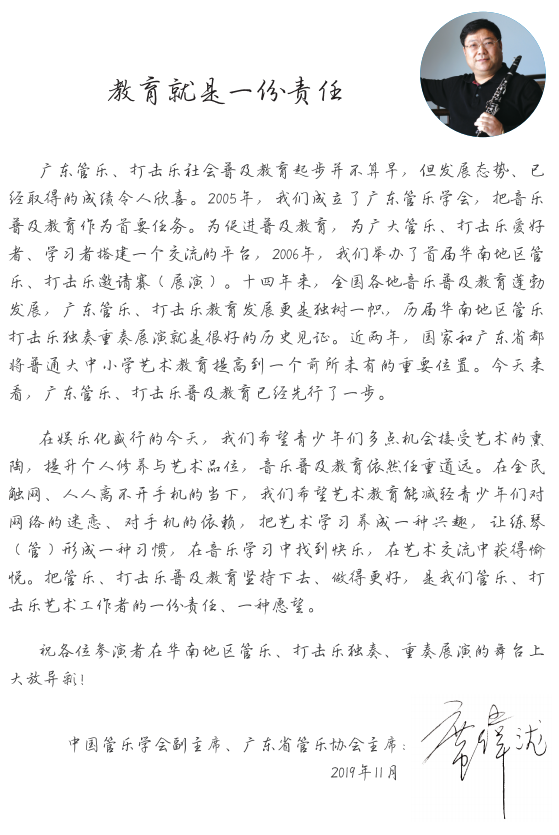 教育就是一份责任
广东管乐、打击乐社会普及教育起步并不算早，但发展态势、已
经取得的成绩令人欣喜。2005年，我们成立了广东管乐学会，把音乐
普及教育作为首要任务。为促进普及教育，为广大管乐、打击乐爱好
者、学习者搭建一个交流的平台，2006年，我们举办了首届华南地区管
乐、打击乐邀请赛（展演）。十四年来，全国各地音乐普及教育蓬勃
发展，广东管乐、打击乐教育发展更是独树一帜，历届华南地区管乐
打击乐独奏重奏展演就是很好的历史见证。近两年，国家和广东省都
将普通大中小学艺术教育提高到一个前所未有的重要位置。今天来
看，广东管乐、打击乐普及教育已经先行了一步。
在娱乐化盛行的今天，我们希望青少年们多点机会接受艺术的熏
陶，提升个人修养与艺术品位，音乐普及教育依然任重道远。在全民
触网、人人离不开手机的当下，我们希望艺术教育能减轻青少年们对
网络的迷恋、对手机的依赖，把艺术学习养成一种兴趣，让练琴
（管）形成一种习惯，在音乐学习中找到快乐，在艺术交流中获得愉
悦。把管乐、打击乐普及教育坚持下去、做得更好，是我们管乐、打
击乐艺术工作者的一份责任、一种愿望。
祝各位参演者在华南地区管乐、打击乐独奏、重奏展演的舞台上
大放异彩！
中国管乐学会副主席、广东省管乐协会主席：
2019年11月